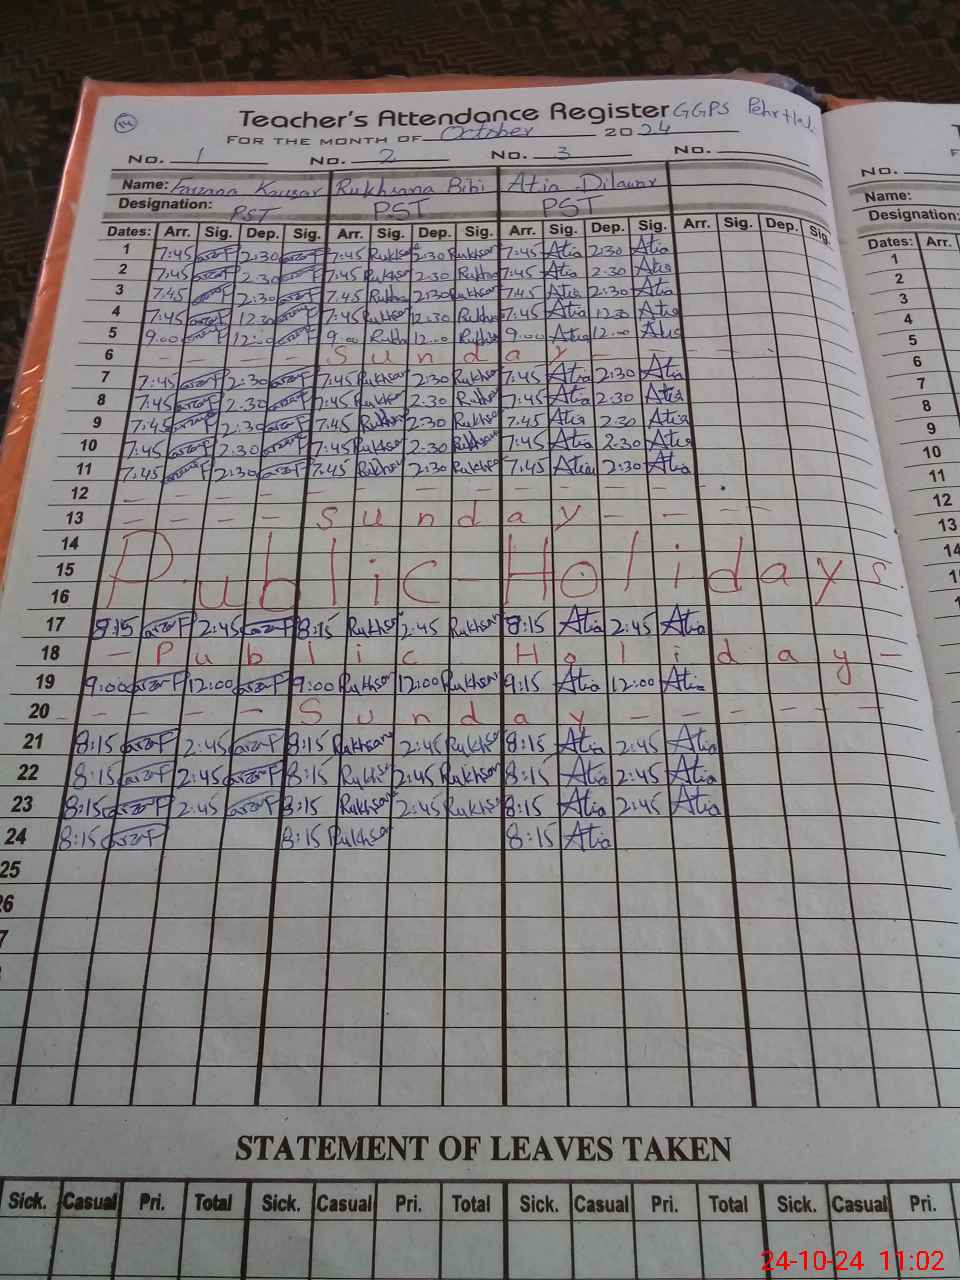 14
Teacher's Attendance Register GGPS
FOR THE MONTH OF October 2024
No. 1 No. 2 No. 3 No.
Name: Farzana Kausar Rukhsana Bibi Atia Dilawar
Designation: PST PST PST
Dates: Arr. Sig. Dep. Sig. Arr. Sig. Dep. Sig. Arr. Sig. Dep. Sig. Arr. Sig. Dep. Sig.
1 7:45 2:30 7:45 Rukhsan 2:30 Rukhsan 7:45 Atia 2:30 Atia
2 7:45 2:30 7:45 Rukhsan 2:30 Rukhsan 7:45 Atia 2:30 Atia
3 7:45 2:30 7:45 Rukhsan 2:30 Rukhsan 7:45 Atia 2:30 Atia
4 7:45 12:30 7:45 Rukhsan 12:30 Rukhsan 7:45 Atia 12:30 Atia
5 9:00 12:00 9:00 Rukhs 12:00 Rukhsa 9:00 Atia 12:00 Atia
6 - - - - Sunday - - - -
7 7:45 2:30 7:45 Rukhsan 2:30 Rukhsan 7:45 Atia 2:30 Atia
8 7:45 2:30 7:45 Rukhsan 2:30 Rukhsan 7:45 Atia 2:30 Atia
9 7:45 2:30 7:45 Rukhsan 2:30 Rukhsan 7:45 Atia 2:30 Atia
10 7:45 2:30 7:45 Rukhsan 2:30 Rukhsan 7:45 Atia 2:30 Atia
11 7:45 2:30 7:45 Rukhsan 2:30 Rukhsan 7:45 Atia 2:30 Atia
12 - - - - - - - - - - - -
13 - - - - Sunday - - - -
14
15 Public Holidays.
16
17 8:15 2:45 8:15 Rukhsan 2:45 Rukhsan 8:15 Atia 2:45 Atia
18 - Public Holiday -
19 9:00 12:00 9:00 Rukhsan 12:00 Rukhsan 9:15 Atia 12:00 Atia
20 - - - - Sunday - - - - - -
21 8:15 2:45 8:15 Rukhsan 2:45 Rukhsan 8:15 Atia 2:45 Atia
22 8:15 2:45 8:15 Rukhsan 2:45 Rukhsan 8:15 Atia 2:45 Atia
23 8:15 2:45 8:15 Rukhsan 2:45 Rukhsan 8:15 Atia 2:45 Atia
24 8:15 8:15 Rukhsan 8:15 Atia
25
26
7
STATEMENT OF LEAVES TAKEN
Sick. Casual Pri. Total Sick. Casual Pri. Total Sick. Casual Pri. Total Sick. Casual Pri.
No.
Name:
Designation:
Dates: Arr.
1
2
3
4
5
6
7
8
9
10
11
12
13
14
24-10-24 11:02